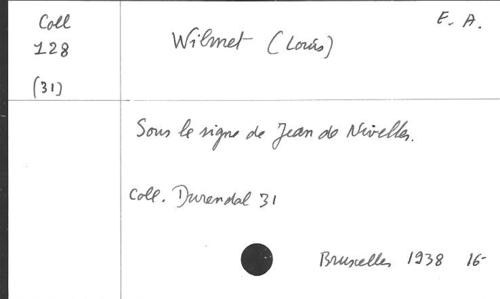 Coll
128
(31)
Wilmet (Louis)
E. A.
Sous le signe de Jean de Nivelles.
Coll. Durendal 31
Bruxelles 1938 16-